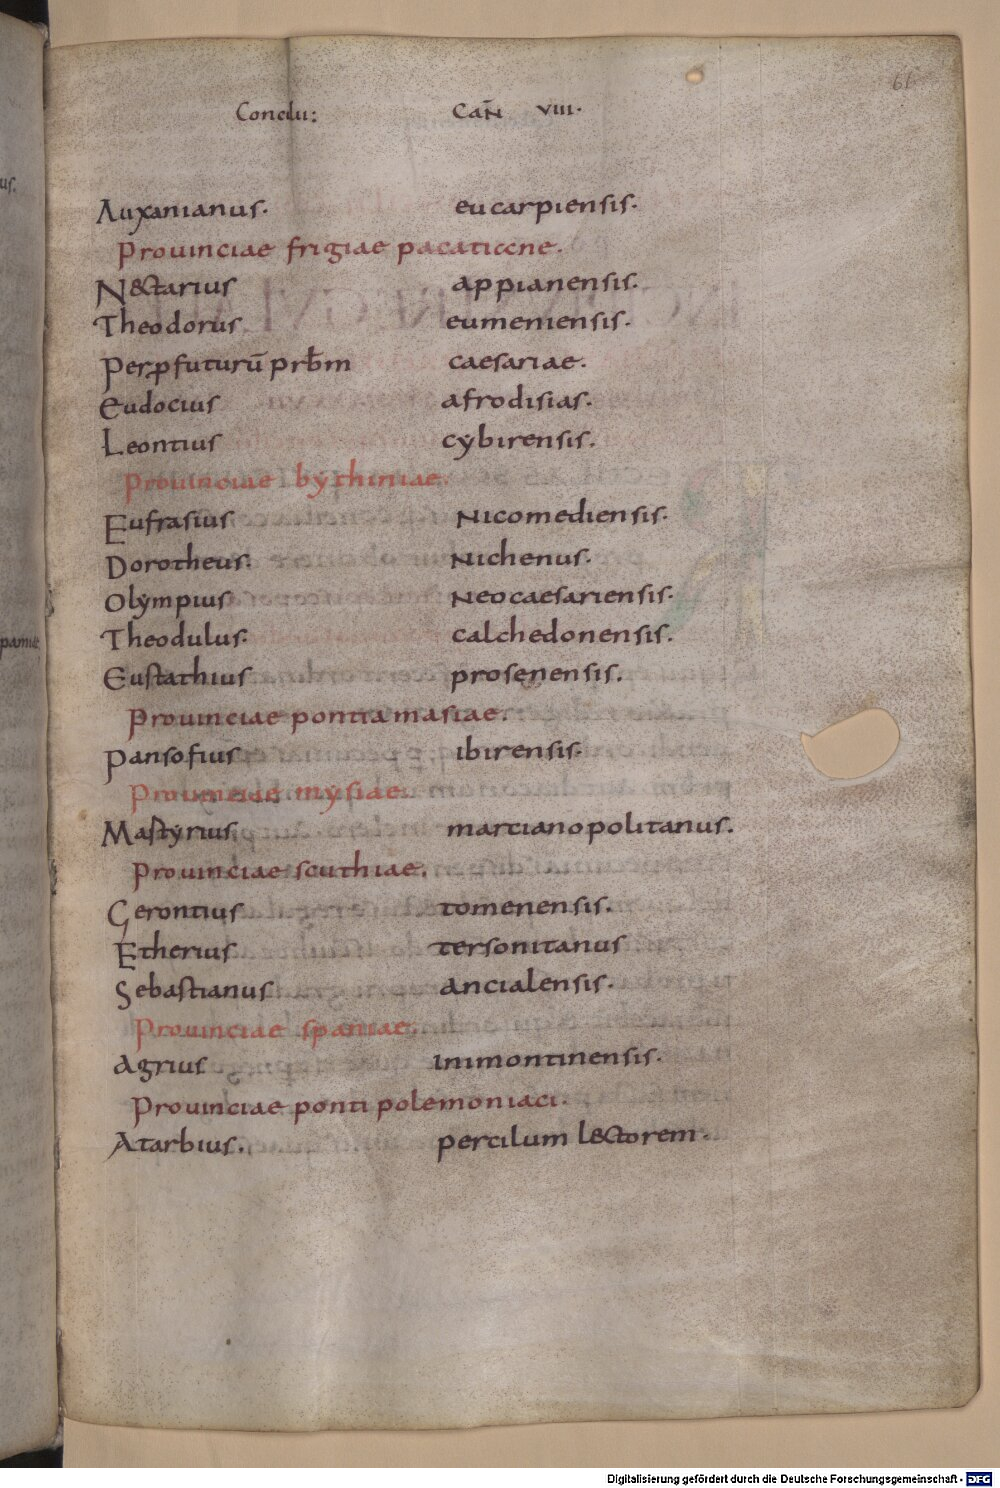 66
Concılıı: Cañ VIII.
Auxanianus. eucarpiensis.
Prouinciae frigiae pacaticcne.
N&tarius appianensis.
Theodorus eumeniensis.
Perꝓfuturū prb̄m caesariae.
Eudocius afrodisias.
Leontius cybirensis.
Prouinciae bythiniae.
Eufrasius Nicomediensis.
Dorotheus. Nichenus.
Olympius Neocaesariensis.
Theodulus. calchedonensis.
Eustathius prosenensis.
Prouinciae pontiamasiae.
Pansofius ibirensis.
Prouinciae mysiae.
Mastyrius marcianopolitanus.
Prouinciae scuthiae.
Gerontius tomenensis.
Etherius tersonitanus
Sebastianus ancialensis.
Prouinciae spaniae.
Agrius Inimontinensis.
Prouinciae ponti polemoniaci.
Atarbius. percilum l&torem.
Digitalisierung gefördert durch die Deutsche Forschungsgemeinschaft - DFG